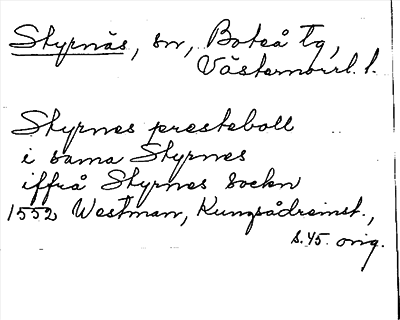 Styrnäs, sn, Boteå tg,
Västernorrl. l.
Styrnes presteboll
i sama Styrnes
iffrå Styrnes sockn
1552 Westman, Kungsådreinst.,
s. 45. orig.